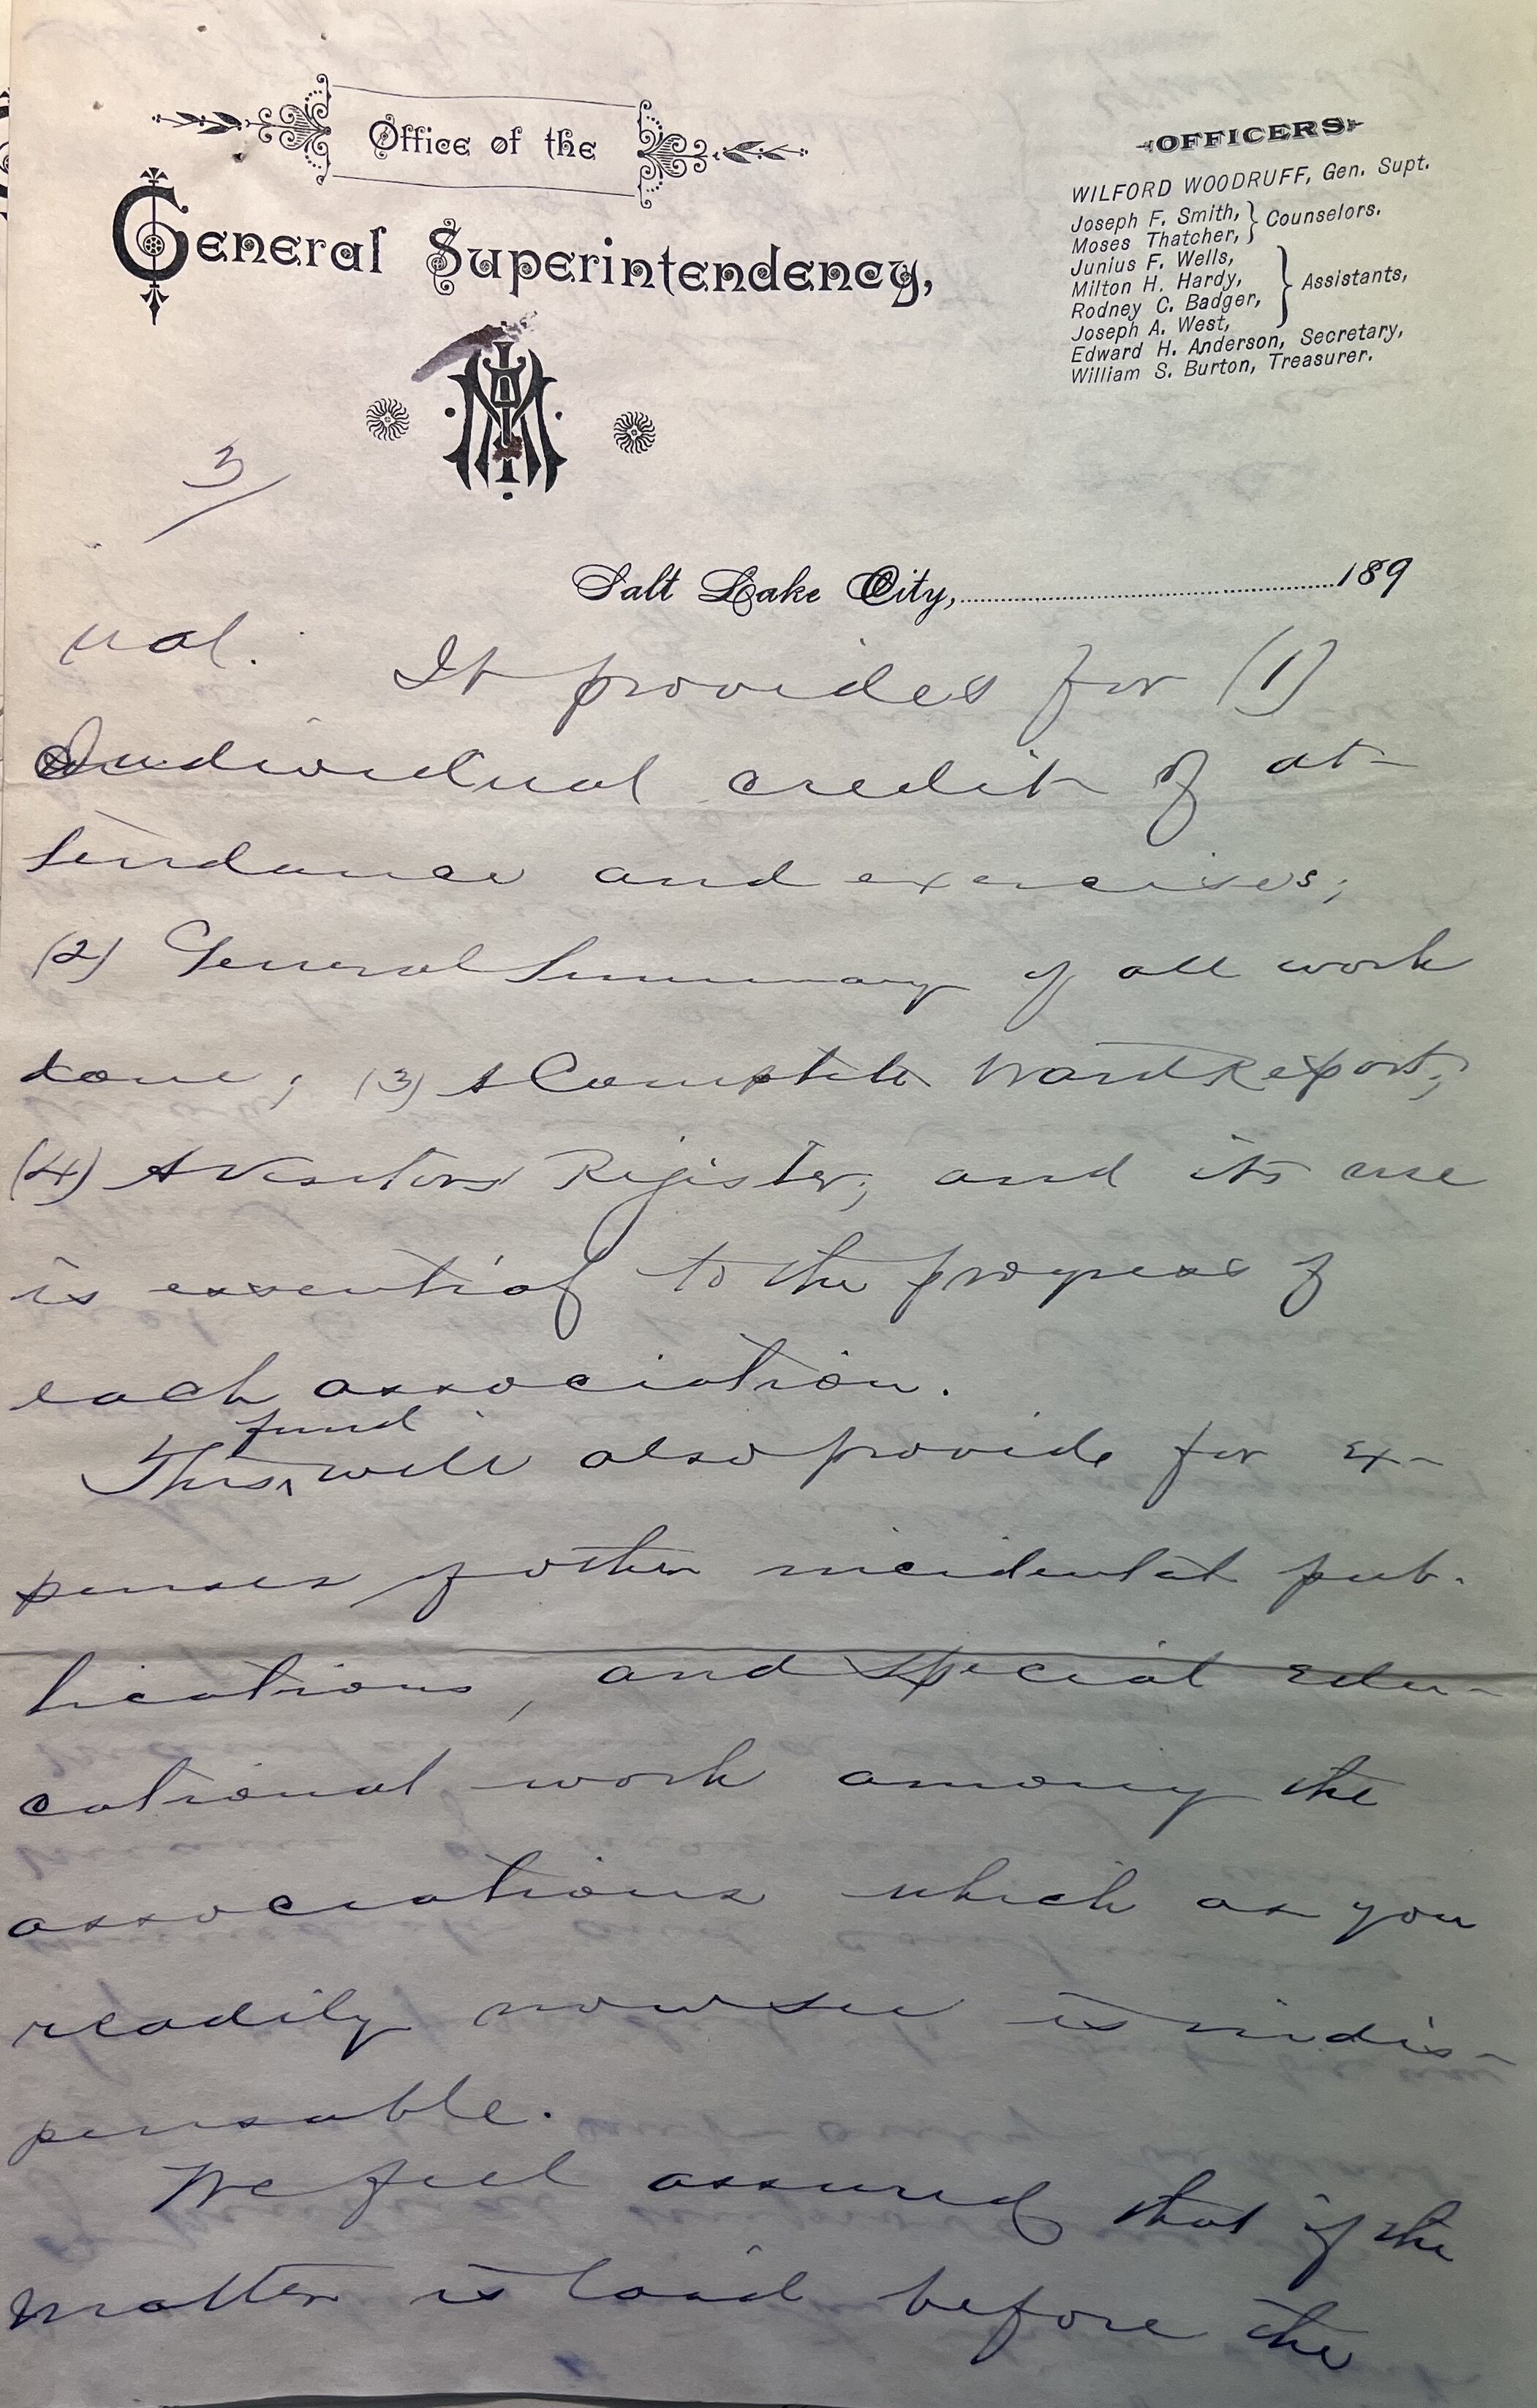 Office of the
General Superintendency,
OFFICERS
WILFORD WOODRUFF, Gen. Supt.
Joseph F. Smith, } Counselors.
Moses Thatcher,
Junius F. Wells,
Milton H. Hardy, } Assistants,
Rodney C. Badger,
Joseph A. West,
Edward H. Anderson, Secretary,
William S. Burton, Treasurer.
3/
Salt Lake City, 189
ual. It provides for (1)
Individual credit of at-
tendance and exercises;
(2) General Summary of all work
done; (3) A Complete Ward Report;
(4) A Visitors' Register; and its use
is essential to the progress of
each association.
fund
This ^ will also provide for ex-
penses of other incidental pub-
lications, and special edu-
cational work among the
associations which as you
readily now see is indis-
pensable.
We feel assured that if the
matter is laid before the